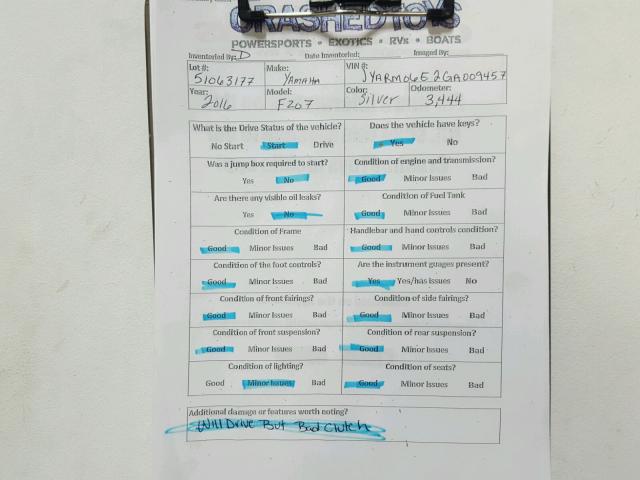 CRASHEDTOYS
POWERSPORTS • EXOTICS • RVs • BOATS
Inventoried By: D Date Inventoried: Imaged By:
Lot #: 51063177 Make: YAMAHA VIN #: JYARM06E2GA009457
Year: 2016 Model: FZ07 Color: Silver Odometer: 3,444
What is the Drive Status of the vehicle? Does the vehicle have keys?
No Start Start Drive Yes No
Was a jump box required to start? Condition of engine and transmission?
Yes No Good Minor Issues Bad
Are there any visible oil leaks? Condition of Fuel Tank
Yes No Good Minor Issues Bad
Condition of Frame Handlebar and hand controls condition?
Good Minor Issues Bad Good Minor Issues Bad
Condition of the foot controls? Are the instrument guages present?
Good Minor Issues Bad Yes Yes/has issues No
Condition of front fairings? Condition of side fairings?
Good Minor Issues Bad Good Minor Issues Bad
Condition of front suspension? Condition of rear suspension?
Good Minor Issues Bad Good Minor Issues Bad
Condition of lighting? Condition of seats?
Good Minor Issues Bad Good Minor Issues Bad
Additional damage or features worth noting?
Will Drive But Bad Clutch